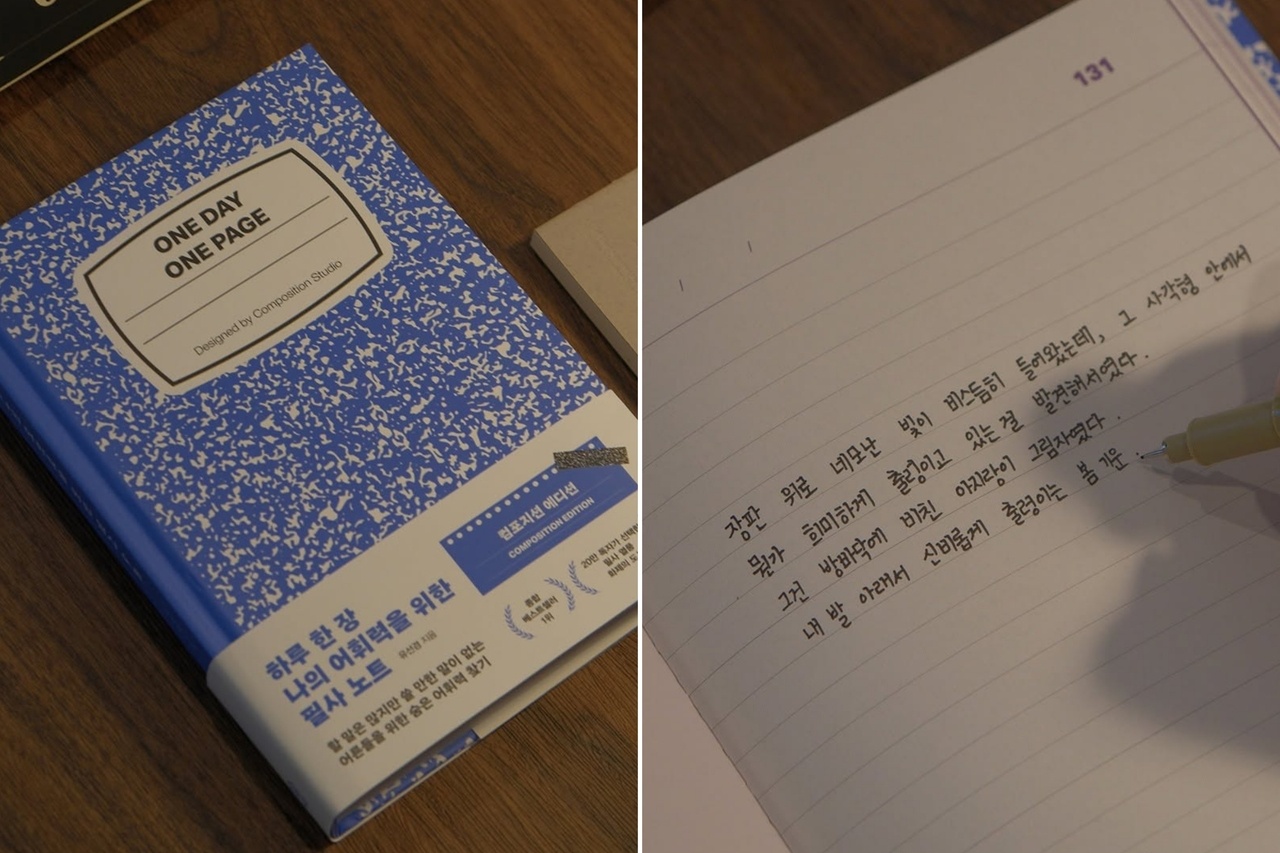 ONE DAY
ONE PAGE
Designed by Composition Studio
컴포지션 에디션
COMPOSITION EDITION
종합
베스트셀러
1위
20만 독자가 선택한
필사 열풍
화제의 도
하루 한 장
나의 어휘력을 위한
필사 노트
유선경 지음
할 말은 많지만 쓸 만한 말이 없는
어른들을 위한 숨은 어휘력 찾기
131
장판 위로 네모난 빛이 비스듬히 들어왔는데, 그 사각형 안에서
뭔가 희미하게 출렁이고 있는 걸 발견해서였다.
그건 방바닥에 비친 아지랑이 그림자였다.
내 발 아래서 신비롭게 출렁이는 봄 기운.